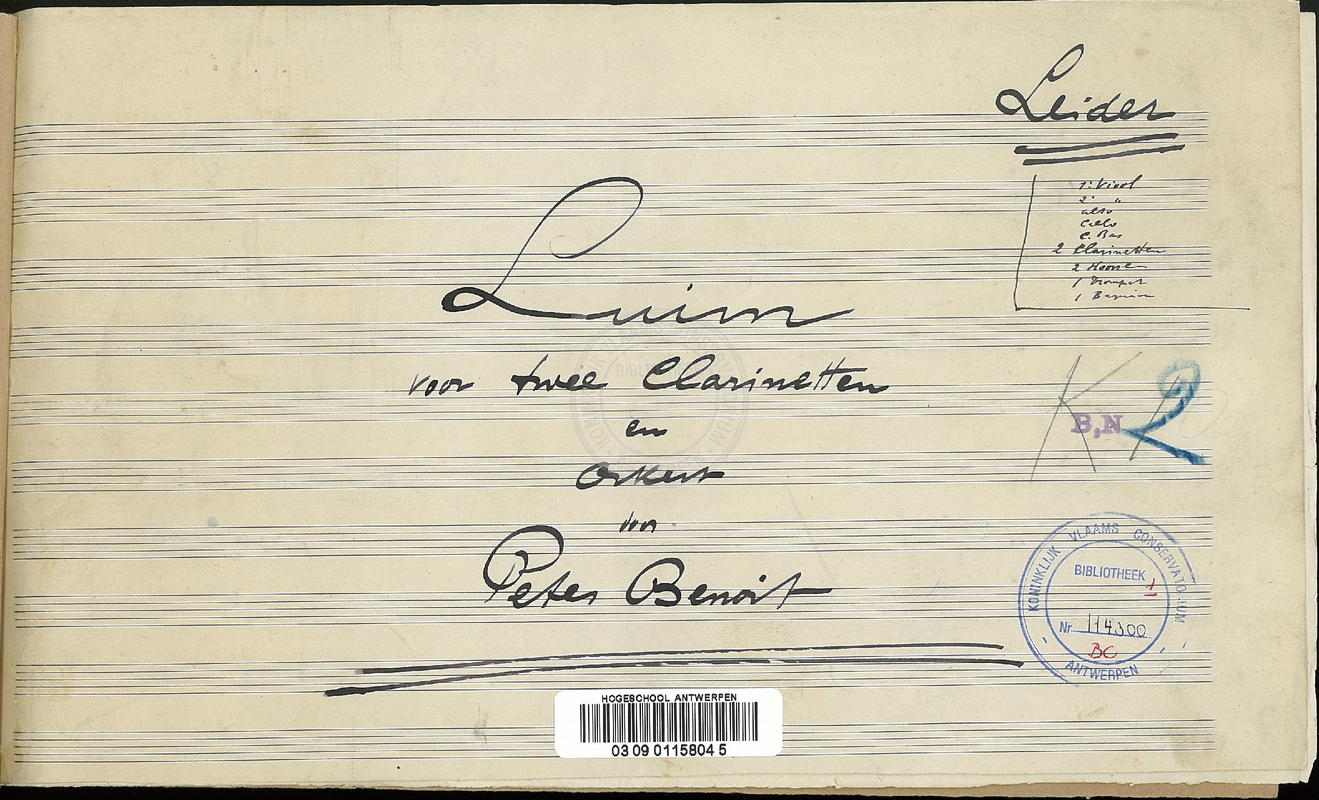 Leider
1e Viool
2e "
alto
Cello
C. Bas
2 Clarinetten
2 Hoorn
1 Trompet
1
Luim
voor twee Clarinetten
en
Orkest
von
Peter Benoit
B,N 2
KONINKLIJK VLAAMS CONSERVATORIUM
BIBLIOTHEEK
Nr 114300
BC
ANTWERPEN
HOGESCHOOL ANTWERPEN
03 09 0115804 5